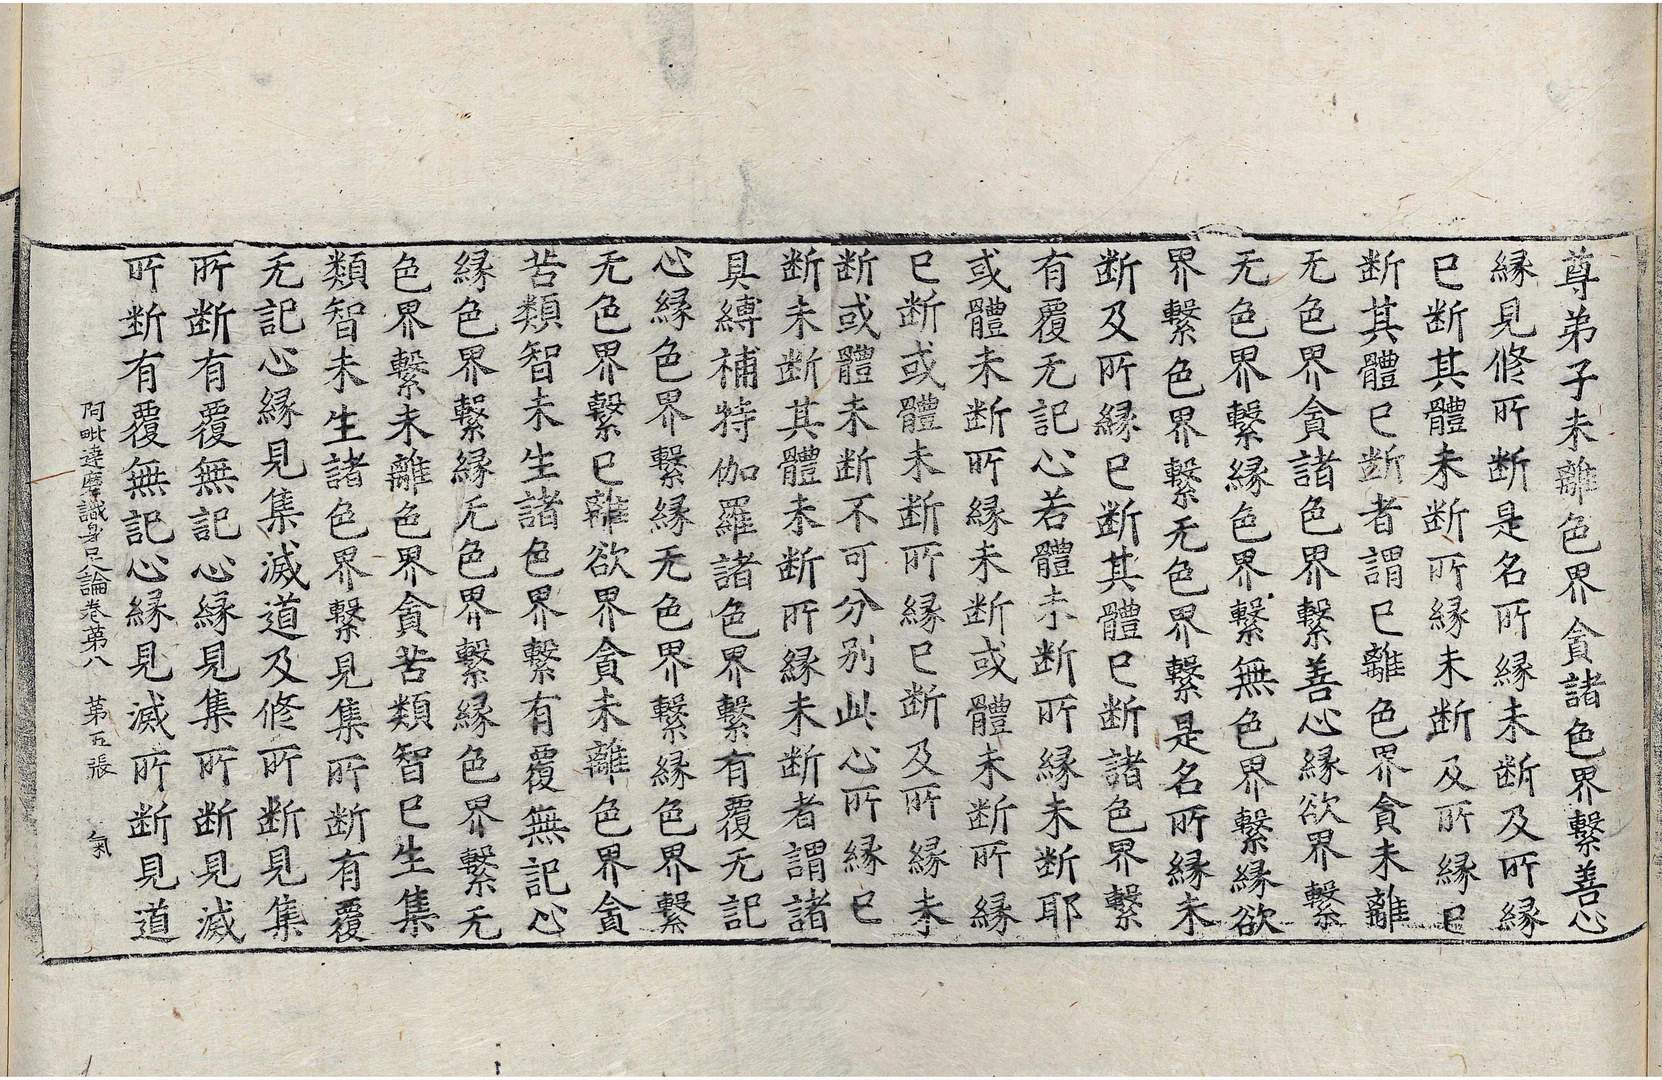 尊弟子未離色界貪諸色界繫善心
縁見修所断是名所縁未断及所縁
已断其體未断所縁未断及所縁已
断其體已断者謂已離色界貪未離
无色界貪諸色界繫善心縁欲界繫
无色界繫縁色界繫無色界繫縁欲
界繫色界繫无色界繫是名所縁未
断及所縁已断其體已断諸色界繫
有覆无記心若體未断所縁未断耶
或體未断所縁未断或體未断所縁
已断或體未断所縁已断及所縁未
断或體未断不可分別此心所縁已
断未断其體未断所縁未断者謂諸
具縛補特伽羅諸色界繫有覆无記
心縁色界繫縁无色界繫縁色界繫
无色界繫已離欲界貪未離色界貪
苦類智未生諸色界繫有覆無記心
縁色界繫縁无色界繫縁色界繫无
色界繫未離色界貪苦類智已生集
類智未生諸色界繫見集所断有覆
无記心縁見集滅道及修所断見集
所断有覆無記心縁見集所断見滅
所断有覆無記心縁見滅所断見道
阿毗達磨識身足論卷第八　第五張　氣